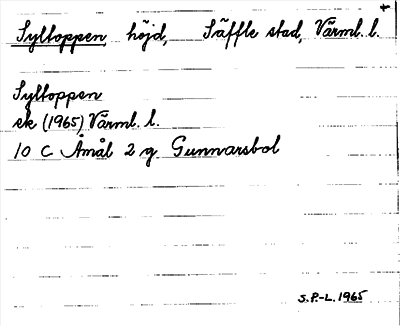 Syltoppen, höjd, Säffle stad, Värml. l.
Syltoppen
ek (1965) Värml. l.
10 C Åmål 2 g Gunnarsbol
S.P.-L. 1965